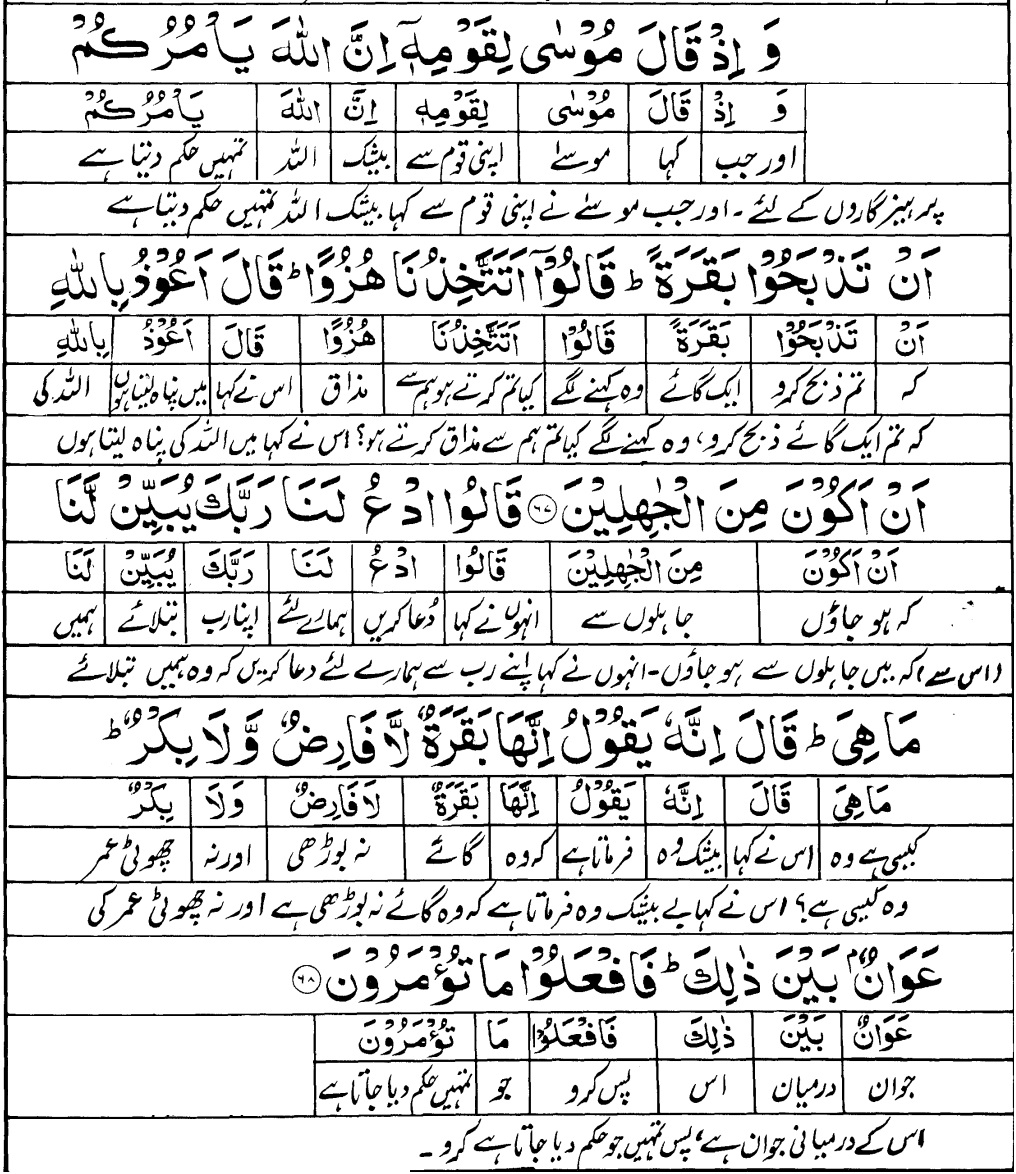 وَ اِذْ قَالَ مُوْسٰى لِقَوْمِهٖۤ اِنَّ اللّٰهَ يَاْمُرُكُمْ
وَ اِذْ قَالَ مُوْسٰى لِقَوْمِهٖ اِنَّ اللّٰهَ يَاْمُرُكُمْ
اور جب کہا موسےٰ اپنی قوم سے بیشک اللہ تمہیں حکم دیتا ہے
پرہیزگاروں کے لئے ۔ اور جب موسےٰ نے اپنی قوم سے کہا بیشک اللہ تمہیں حکم دیتا ہے
اَنْ تَذْبَحُوْا بَقَرَةً ؕ قَالُوْۤا اَتَتَّخِذُنَا هُزُوًا ؕ قَالَ اَعُوْذُ بِاللّٰهِ
اَنْ تَذْبَحُوْا بَقَرَةً قَالُوْا اَتَتَّخِذُنَا هُزُوًا قَالَ اَعُوْذُ بِاللّٰهِ
کہ تم ذبح کرو ایک گائے وہ کہنے لگے کیا تم کرتے ہو ہم سے مذاق اس نے کہا میں پناہ لیتا ہوں اللہ کی
کہ تم ایک گائے ذبح کرو، وہ کہنے لگے کیا تم ہم سے مذاق کرتے ہو؟ اس نے کہا میں اللہ کی پناہ لیتا ہوں
اَنْ اَكُوْنَ مِنَ الْجٰهِلِيْنَ ۶۷ قَالُوا ادْعُ لَنَا رَبَّكَ يُبَيِّنْ لَّنَا
اَنْ اَكُوْنَ مِنَ الْجٰهِلِيْنَ قَالُوا ادْعُ لَنَا رَبَّكَ يُبَيِّنْ لَنَا
کہ ہو جاؤں جاہلوں سے انہوں نے کہا دُعا کریں ہمارے لئے اپنا رب بتلائے ہمیں
(اس سے) کہ میں جاہلوں سے ہو جاؤں - انہوں نے کہا اپنے رب سے ہمارے لئے دعا کریں کہ وہ ہمیں بتلائے
مَا هِىَ ؕ قَالَ اِنَّهٗ يَقُوْلُ اِنَّهَا بَقَرَةٌ لَّا فَارِضٌ وَّلَا بِكْرٌ ؕ
مَا هِىَ قَالَ اِنَّهٗ يَقُوْلُ اِنَّهَا بَقَرَةٌ لَا فَارِضٌ وَلَا بِكْرٌ
کیسی ہے وہ اس نے کہا بیشک وہ فرماتا ہے کہ وہ گائے نہ بوڑھی اور نہ چھوٹی عمر
وہ کیسی ہے؟ اس نے کہا بے بیشک وہ فرماتا ہے کہ وہ گائے نہ بوڑھی ہے اور نہ چھوٹی عمر کی
عَوَانٌۢ بَيْنَ ذٰلِكَ ؕ فَافْعَلُوْا مَا تُؤْمَرُوْنَ ۶۸
عَوَانٌ بَيْنَ ذٰلِكَ فَافْعَلُوْا مَا تُؤْمَرُوْنَ
جوان درمیان اس پس کرو جو تمہیں حکم دیا جاتا ہے
اس کے درمیانی جوان ہے، پس تمہیں جو حکم دیا جاتا ہے کرو ۔